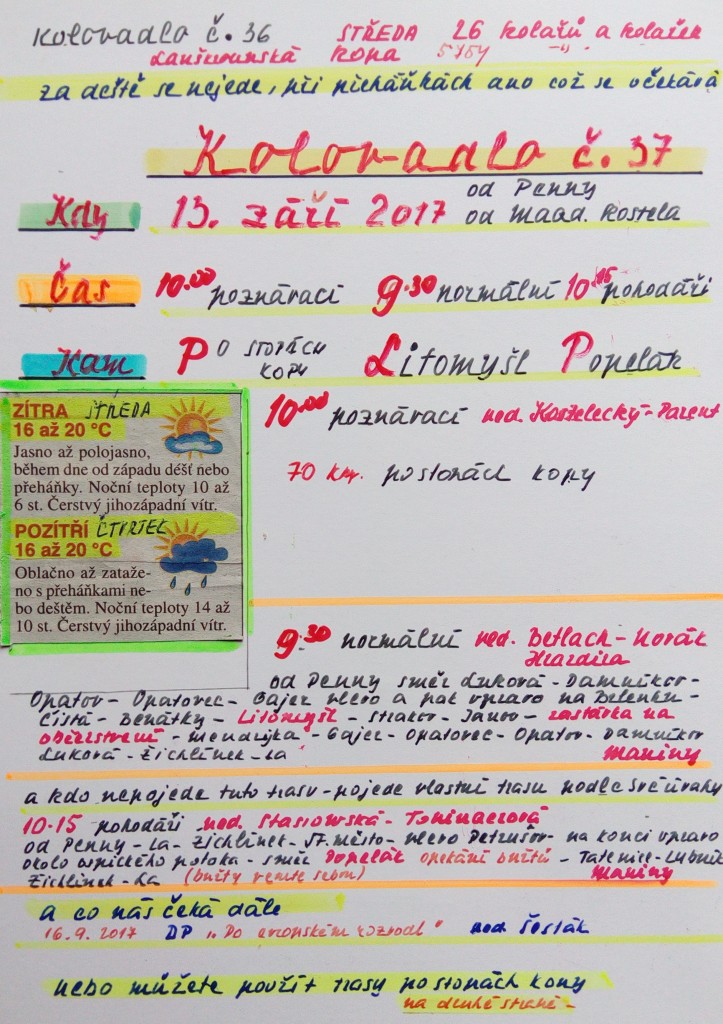 Kolovadlo č. 36 STŘEDA 26 kolařů a kolařek
Lanškrounská kopa 5784 - " -
za deště se nejede, při přeháňkách ano což se očekává
Kolovadlo č. 37
Kdy 13. září 2017 od Penny
od Magd. kostela
Čas 10.00 poznávací 9.30 normální 10.15 pohodáři
Kam Po stopách kopy Litomyšl Popelák
ZÍTRA STŘEDA
16 až 20 °C
Jasno až polojasno,
během dne od západu déšť nebo
přeháňky. Noční teploty 10 až
6 st. Čerstvý jihozápadní vítr.
POZÍTŘÍ ČTVRTEK
16 až 20 °C
Oblačno až zataže-
no s přeháňkami ne-
bo deštěm. Noční teploty 14 až
10 st. Čerstvý jihozápadní vítr.
10.00 poznávací ved. Kostelecký - Parent
70 km. po stopách kopy
9.30 normální ved. Betlach - Novák
od Penny směr Luková - Damníkov -
Opatov - Opatovec - Gajer vlevo a pak vpravo na
Čistá - Benátky - Litomyšl - Strakov - Janov - zastávka na
občerstvení - Mendryka - Gajer - Opatovec - Opatov - Damníkov
Luková - Žichlínek - La Maniny
a kdo nepojede tuto trasu - pojede vlastní trasu podle své úvahy
10.15 pohodáři ved. Stasiowská -
od Penny - La - Žichlínek - M. město - vlevo Petrušov - na konci vpravo
okolo potoka - směr Popelák opékání buřtů - Tatenice - Lubník
Žichlínek - La (buřty vemte sebou) Maniny
a co nás čeká dále
16.9.2017 DP " Po " ved. Šesták
nebo můžete použít trasy po stopách kopy
na druhé straně -